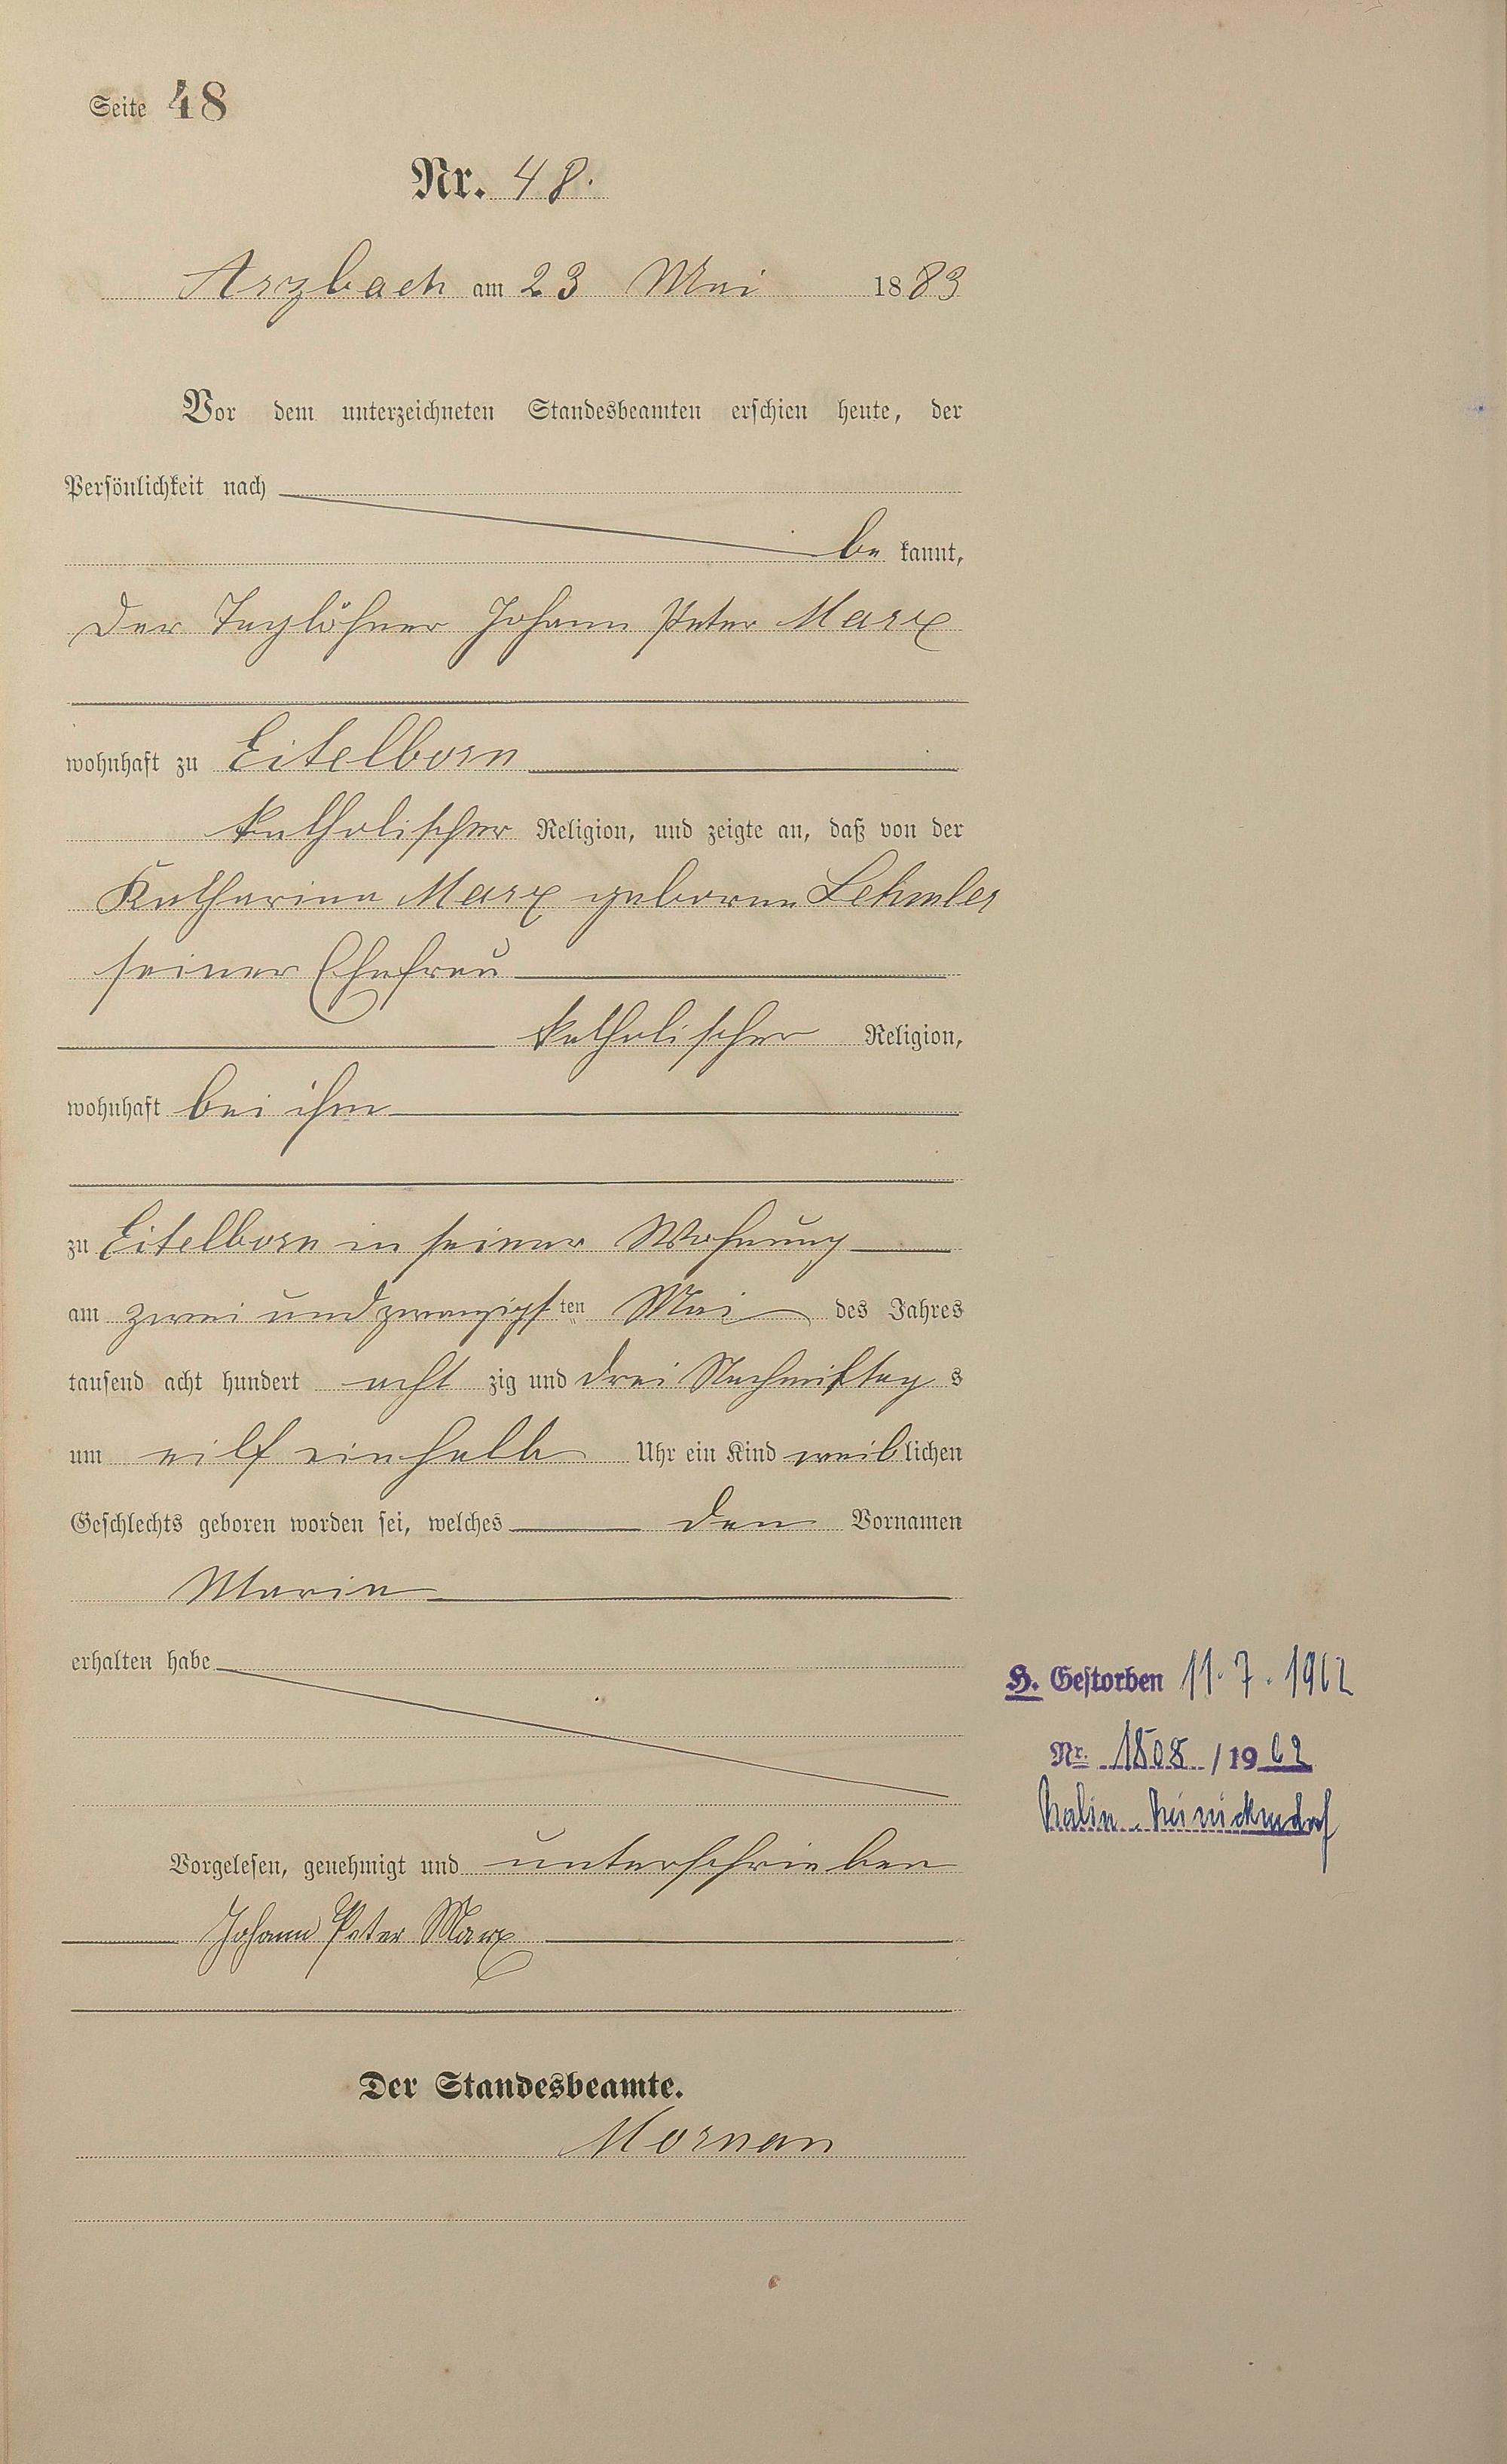 Seite 48
Nr. 48.
Arzbach am 23 Mai 1883
Vor dem unterzeichneten Standesbeamten erschien heute, der
Persönlichkeit nach
be kannt,
der Taglöhner Johann Peter Marx
wohnhaft zu Eitelborn
katholischer Religion, und zeigte an, daß von der
Katharina Marx geborene Lehmler
seiner Ehefrau
katholischer Religion,
wohnhaft bei ihm
zu Eitelborn in seiner Wohnung
am zwei und zwanzigsten Mai des Jahres
tausend acht hundert acht zig und drei Nachmittag s
um eilf einhalb Uhr ein Kind weiblichen
Geschlechts geboren worden sei, welches den Vornamen
Maria
erhalten habe
H. Gestorben 11.7.1962
Nr. 1808 / 1962
Berlin-Reinickendorf
Vorgelesen, genehmigt und unterschrieben
Johann Peter Marx
Der Standesbeamte.